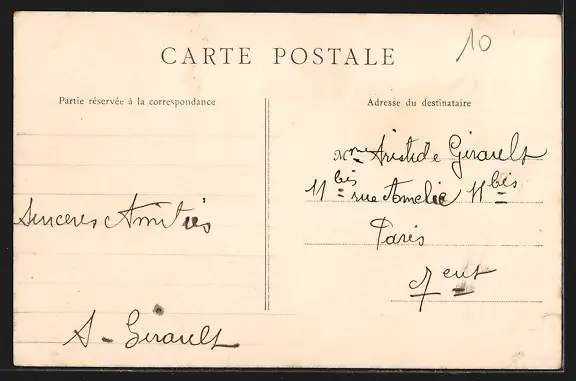 10
CARTE POSTALE
Partie réservée à la correspondance
Sinceres Amitiés
A - Girault
Adresse du destinataire
Mme Aristide Girault
11 bis rue Amelie 11 bis
Paris
7 ent